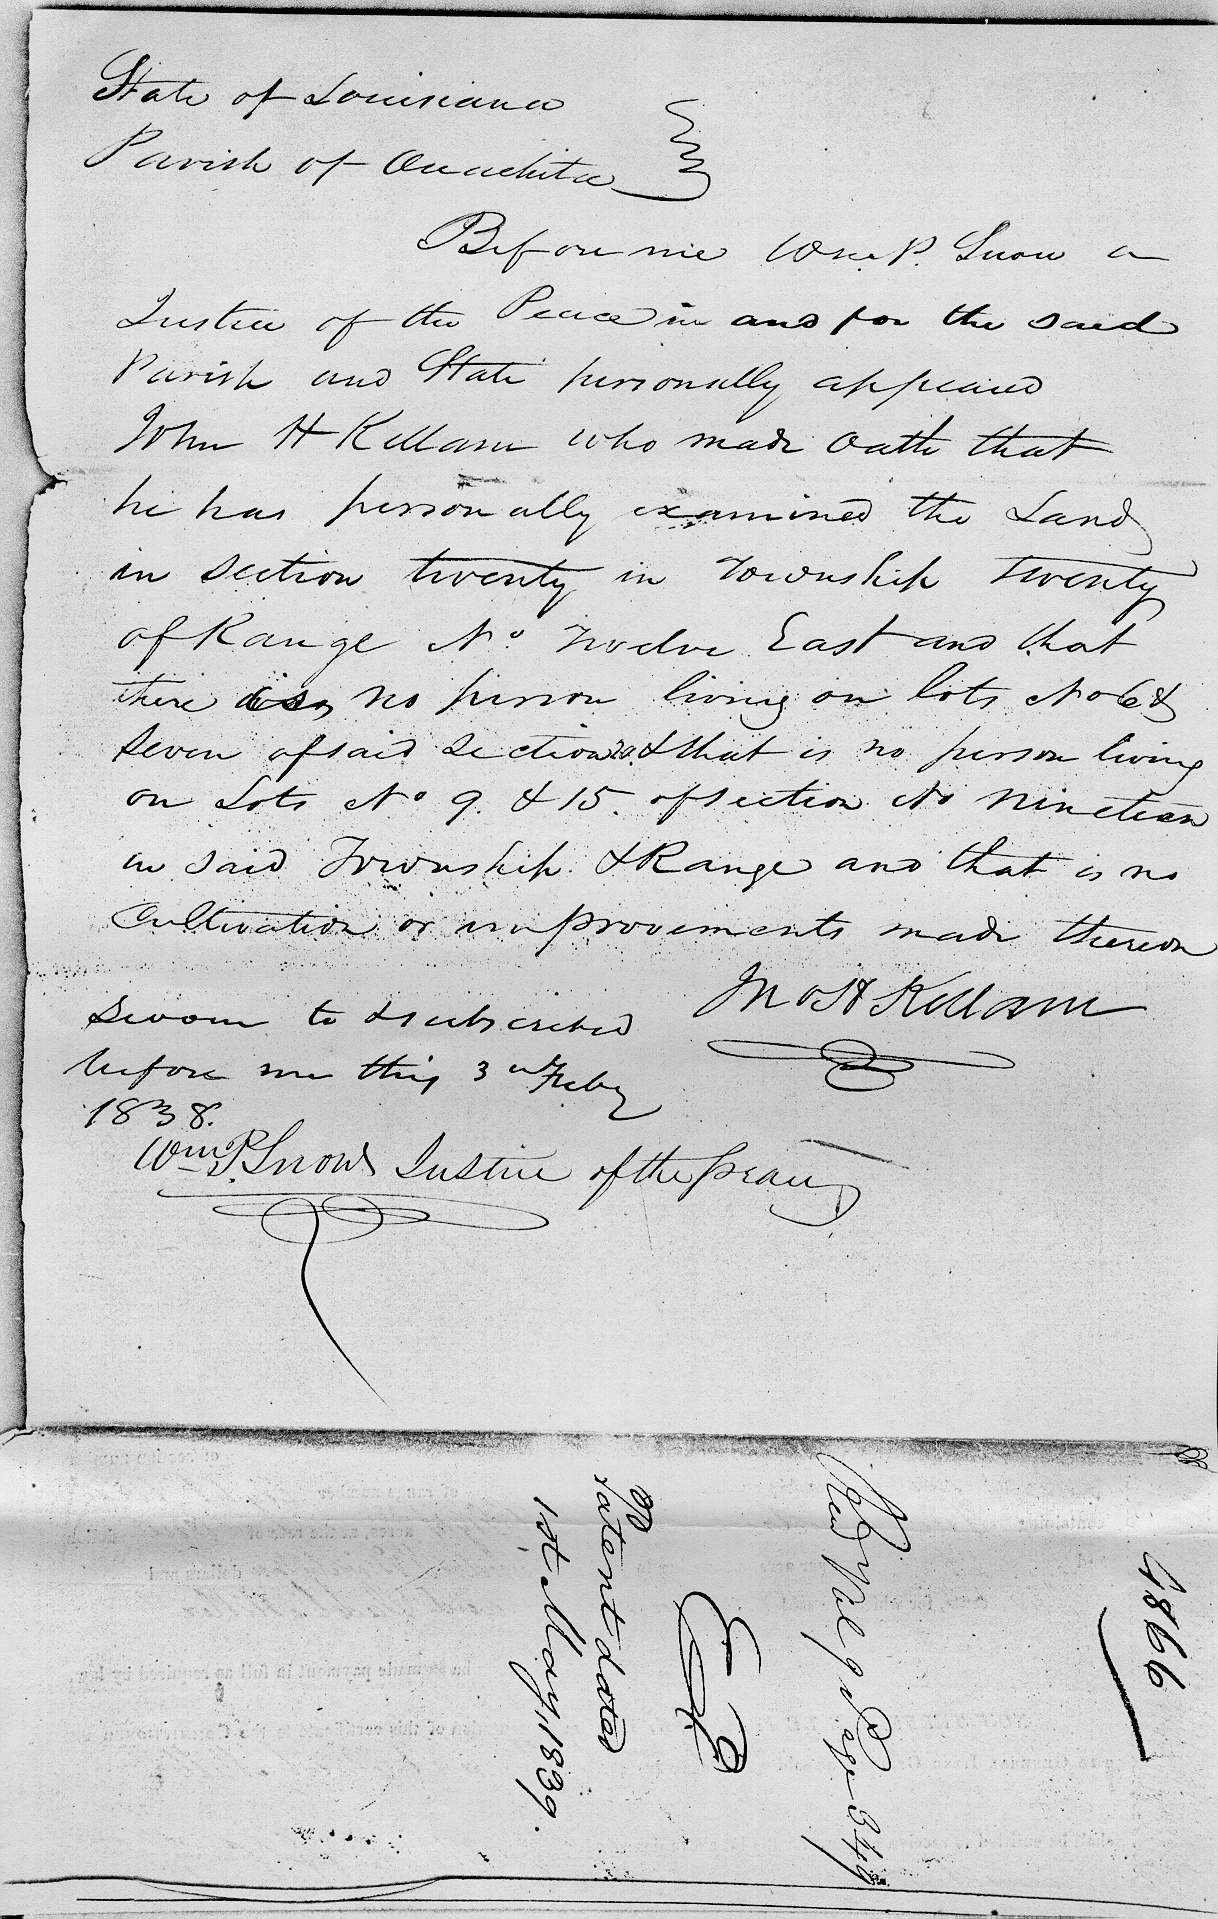 State of Louisiana
Parish of Ouachita
Before me Wm P. Snow a
Justice of the Peace in and for the said
Parish and State personally appeared
John H Kellam who made Oath that
he has personally examined the Land
in Section twenty in Township Twenty
of Range No. Twelve East and that
there is no person living on lots No 6 &
Seven of said Section 20 & that is no person living
on Lots No 9. & 15. of section No Nineteen
in said Township & Range and that is no
Cultivation or improvements made thereon
Jno H Kellam
Sworn to & subscribed
before me this 3rd Feby
1838.
Wm P. Snow Justice of the peace
4866
Vol 9 Page 349
Patent dated
1st May, 1839.